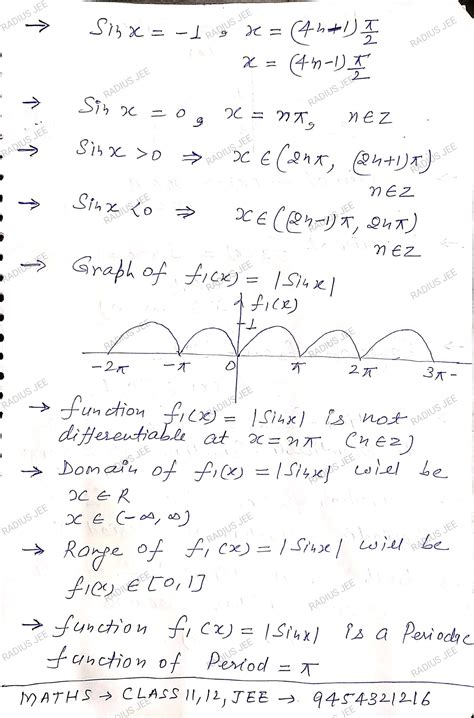 → Sin x = -1, x = (4n+1) π/2
x = (4n-1) π/2
→ Sin x = 0, x = nπ, n∈Z
→ Sin x >0 ⇒ x∈(2nπ, (2n+1)π)
n∈Z
→ Sin x <0 ⇒ x∈((2n-1)π, 2nπ)
n∈Z
→ Graph of f₁(x) = |Sin x|
f₁(x)
1
-2π -π 0 π 2π 3π
→ function f₁(x) = |Sinx| is not
differentiable at x=nπ (n∈Z)
→ Domain of f₁(x) = |Sinx| will be
x ∈ R
x ∈ (-∞, ∞)
→ Range of f₁(x) = |Sinx| will be
f₁(x) ∈ [0,1]
→ function f₁(x) = |Sinx| is a Periodic
function of Period = π
MATHS → CLASS 11,12, JEE → 9454321216
RADIUS JEE